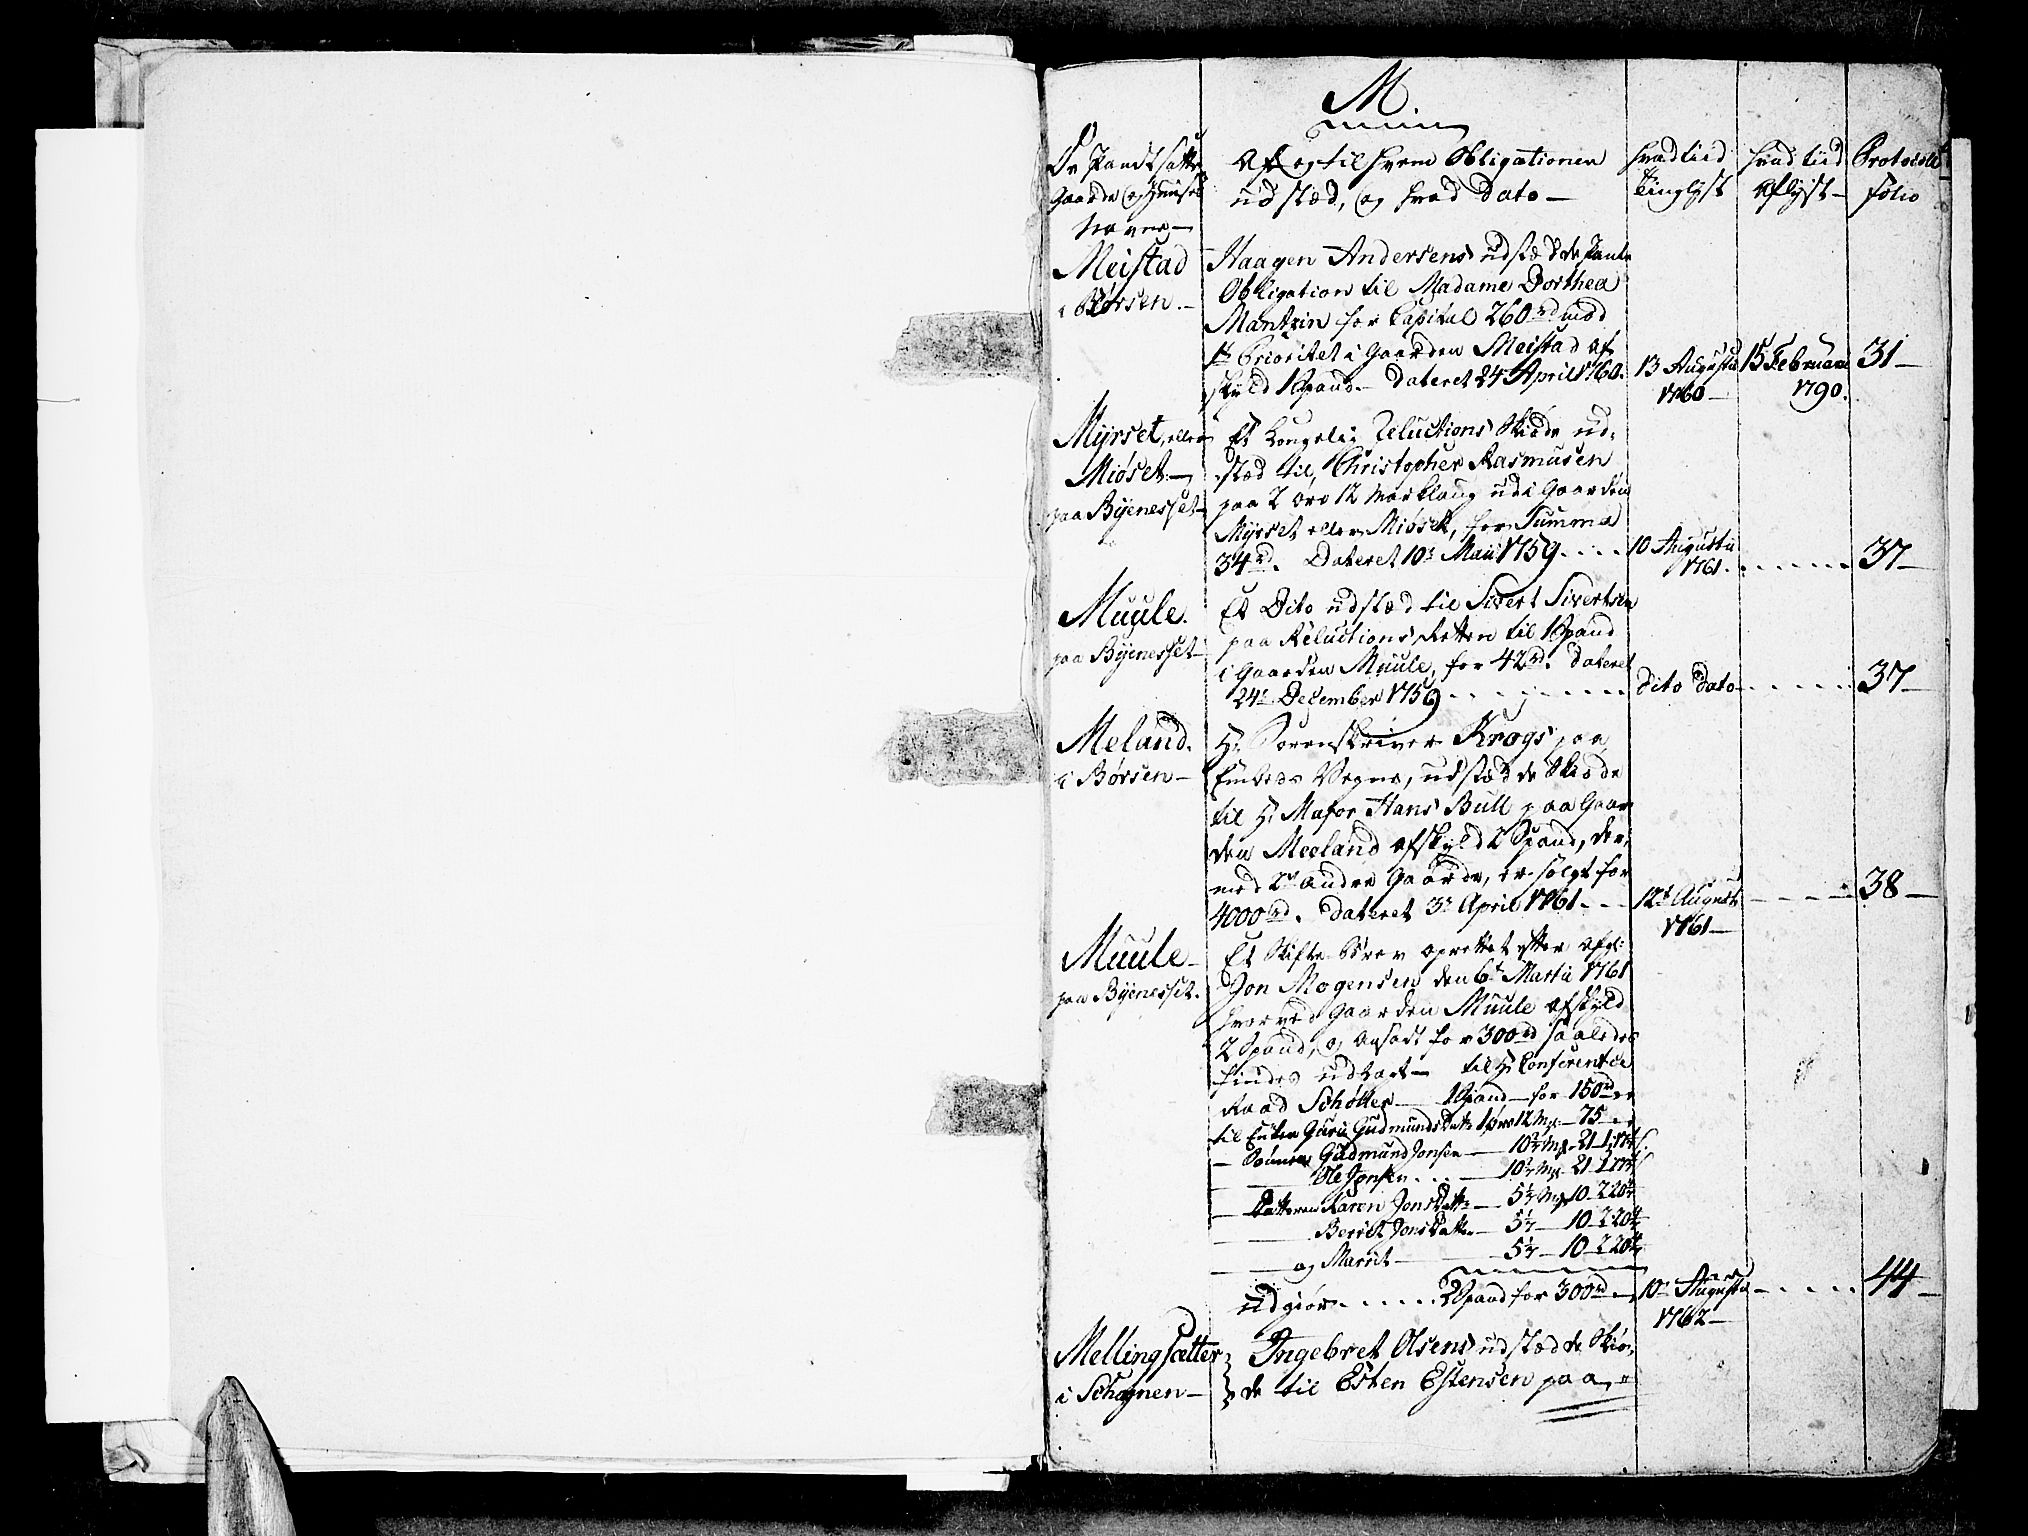 M.
De Pandtsatte
Gaarde og Huuses
Navne —
Af og til hvem Obligationen
udstæd, og hvad dato —
hvad tiid
tinglyst
hvad tiid
aflyst —
Protocoll
folio
Meistad
i Børsen. —
Haagen Andersens udstædde Pante
Obligation til Madame Dorthea
Mantzin for Capital 260 rd mod
1te Prioritet i Gaarden Meistad af
skyld 1 Spand — dateret 24 April 1760.
13 Augustii
1760 —
15 Februarii
1790.
31 —
Myrset, eller
Miøset —
paa Byenesset —
Et Kongelig Reluctions Skiøde ud-
stæd til, Christopher Rasmusen
paa 2 øre 12 Marklaug udi Gaarden
Myrset eller Miøset, for Summa
34 rd. Dateret 10de Maii 1759 ....
10 Augustii
1761. ......
37 —
Muule.
paa Byenesset —
Et Dito udstæd til Sivert Sivertsen
paa Reluctions Retten til 1 Spand
i Gaarden Muule, for 42 rd. dateret
24de December 1759 ......
dito dato ......
37 —
Meland.
i Børsen —
Hr. Sorenskriver Krogs paa
Embeds Vegne, udstædde Skiøde
til Hr. Major Hans Bull paa Gaar
den Meeland afskyld 2 Spand, der,
med 2de andre Gaarde, er solgt for
4000 rd. dateret 3de April 1761 ...
12te Augusti
1761 —
38 —
Muule —
paa Byenesset.
Et Skifte Brev oprettet efter afgl:
Jon Mogensen den 6te Martii 1761
hvorved Gaarden Muule afskyld
2 Spand, og ansadt for 300 rd saaledes
findes udlagt — til Hr. Conferentce
Raad Schøller — 1 Spand — for 150 rd
til Enken Guri Gudmunds Datter 1 øre 12 Mg — 75 —
— Sønnen Gudmund Jonsen — 10 2/7 Mg — 21 — 1 —
— Ole Jonsen .... 10 2/7 Mg 21 — 1 —
— Datteren Karen Jons Datter — 5 1/7 Mg 10 — 2 20
— Berrit Jons Datter — 5 1/7 — 10 — 2 20
— og Marrit — 5 1/7 — 10 — 2 20
udgiør ...... 2 Spand for 300 rd —
10de Augustii
1762 —
44 —
Mellingsætter
i Schognen —
Ingebret Olsens udstædde Skiø,
de til Esten Estensen paa,